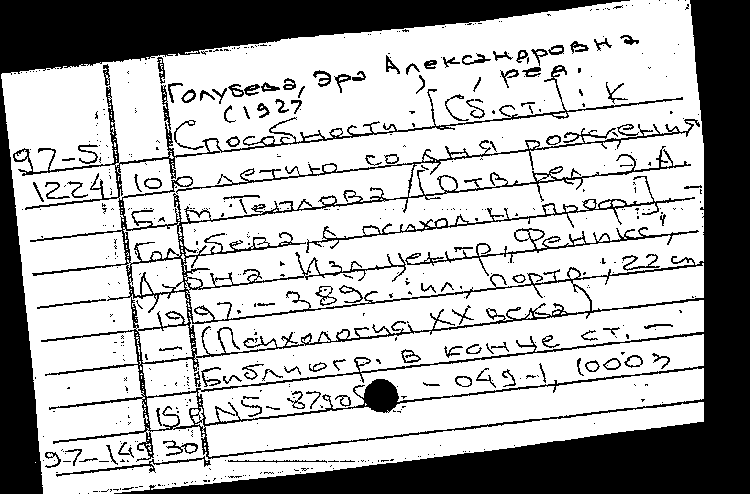 Голубева, Эра Александровна
(1927 , ред.
Способности: [Сб.ст.] : К
97-5
1224 100 летию со дня рождения
Б. М. Теплова / [Отв. ред. Э. А.
Голубева, д. психол. н., проф.]. –
Дубна: Изд. центр "Феникс",
1997. – 389с. : ил., портр. ; 22 см.
. – (Психология XX века)
Библиогр. в конце ст. –
ISBN 5-8790 -049-1, 1000э
97-149 30